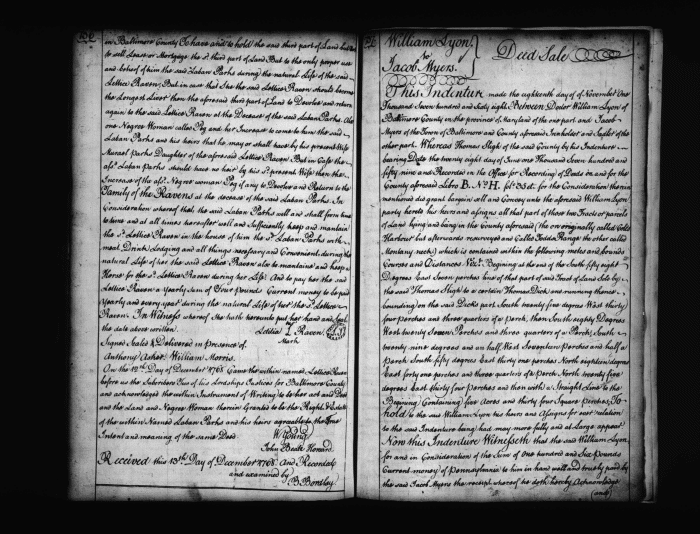 in Baltimore County To have and to hold the said third part of Land but not
to sell Lease or Mortgage the sd. third part of Land But to the only proper use
and behoof of him the said Laban Parks during the natural Life of the said
Lettice Raven, But in case that She the said Lettice Raven should become
the Longest Liver then the aforesaid third part of Land to Devolve and return
again to the said Lettice Raven at the Decease of the said Laban Parks. Also
one Negroe Woman called Peg and her Increase to come to him the said
Laban Parks and his heirs that he may or shall have by his present Wife
Parks Daughter of the aforesaid Lettice Raven But in Case the
afsd. Laban Parks should have no heir by his sd. present Wife then the
Increase of the afsd. Negroe woman Peg if any to Devolve and Return to the
Family of the Ravens at the decease of the said Laban Parks. In
Consideration whereof that the said Laban Parks will and shall from time
to time and at all times hereafter well and Sufficiently keep and maintain
the sd. Lettice Raven in the house of him the sd. Laban Parks with
meat Drink Lodging and all things necessary and Convenient during the
natural Life of her the said Lettice Raven also to maintain and keep a
Horse for the sd. Lettice Raven during her Life And to pay her the said
Lettice Raven a Yearly Sum of Four Pounds Current money to be paid
Yearly and every year during the natural life of her the sd. Lettice
Raven. In Witness whereof She hath hereunto put her hand and Seal
the date above written
Lettice Raven
Mark
Signed Sealed & Delivered in Presence of
Anthony Asher. William Morris.
On the 12th Day of December 1768 Came the within named Lettice Raven
before us the Subscribers Two of his Lordships Justices for Baltimore County
and acknowledged the within Instrument of Writing to be her act and Deed
and the Land and Negroe Woman therein Granted to be the Right & Estate
of the within Named Laban Parks and his heirs agreeable to the true
Intent and meaning of the same Deed
W Young
John Beale Howard
Received this 13th Day of December 1768 And Recorded
and examined by
B Bordley
William Lyon
To
Jacob Myers.
Deed Sale
This Indenture made the eighteenth day of November One
Thousand Seven hundred and Sixty eight Between Doctor William Lyon of
Baltimore County in the province of Maryland of the one part and Jacob
Myers of the Town of Baltimore and County aforesaid Inholder and Sadler of the
other part. Whereas Thomas Sligh of the said County by his Indenture
bearing Date the twenty eight day of June one Thousand Seven hundred and
fifty nine and Recorded in the Office for Recording of Deeds in and for the
County aforesaid Libro B. No. H. for the Consideration therein
mentioned did grant bargain sell and Convey unto the aforesaid William Lyon
party hereto his heirs and assigns all that part of those two Tracts or parcels
of Land lying and being in the County aforesaid (the one originally called Coles
Harbour but afterwards resurveyed and Called Todds Range the other called
Montany neck) which is contained within the following metes and bounds
Courses and Distances Vizt. Beginning at the end of the South fifty eight
Degrees East Seven perches line of that part of said Tract of Land Sold by
the said Thomas Sligh to a certain Thomas Dick and running thence
bounding on the said Dicks part South twenty five degrees West thirty
four perches and three quarters of a perch, then South eighty Degrees
West twenty Seven Perches and three quarters of a Perch, South
twenty nine degrees and a half, West Seventeen Perches and half a
Perch South fifty degrees East thirty one perches North eighteen degrees
East forty one perches and three quarters of a Perch North twenty five
degrees East thirty four Perches and then with a Straight Line to the
Begining Containing five Acres and thirty four Square Perches, To
hold to the said William Lyon his heirs and Assigns for ever relation
to the said Indenture being had may more fully and at Large appear
Now this Indenture Witnesseth that the said William Lyon
for and in Consideration of the Sum of One hundred and Six pounds
Current money of Pennsylvania to him in hand well and truely paid by
the said Jacob Myers the receipt whereof he doth hereby Acknowledge
(and)